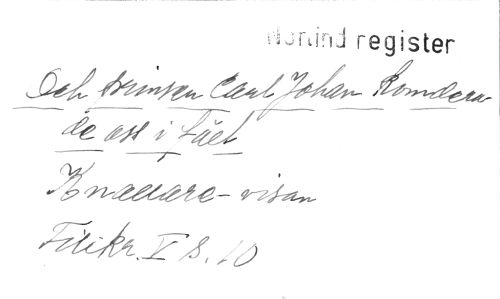 Norlind register
Och prinsen Carl Johan komdera
de oss i fält
Knallare-visan
Filikr. V S. 10